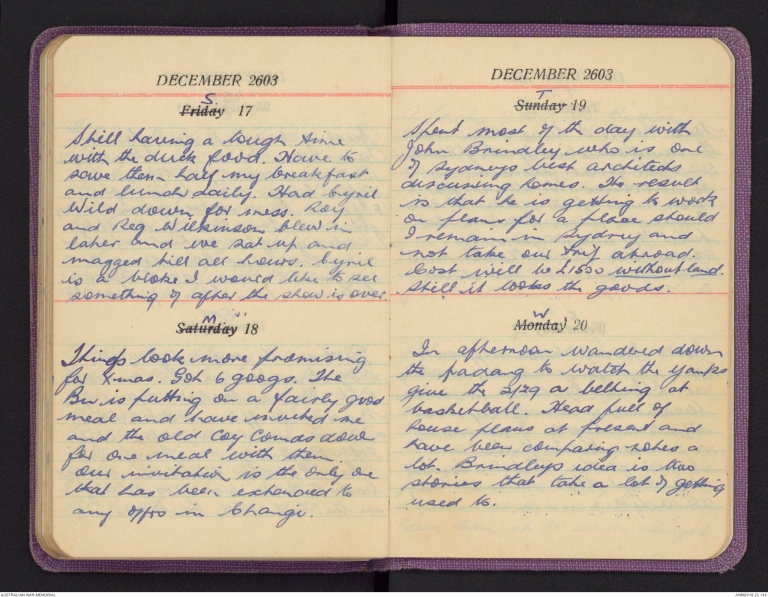 DECEMBER 2603
S
Friday 17
Still having a tough time
with the duck food. Have to
save them half my breakfast
and lunch daily. Had Cyril
Wild down for mess. Roy
and Reg Wilkinson blew in
later and we sat up and
magged till all hours. Cyril
is a bloke I would like to see
something of after the show is over.
M
Saturday 18
Things look more promising
for X-mas. Got 6 googs. The
Bn is putting on a fairly good
meal and have invited me
and the old Coy Comds down
for one meal with them.
Our invitation is the only one
that has been extended to
any offrs in Changi.
DECEMBER 2603
T
Sunday 19
Spent most of the day with
John Brindley who is one
of Sydneys best architects
discussing homes. The result
is that he is getting to work
on plans for a place should
I remain in Sydney and
not take our trip abroad.
Cost will be £1500 without land.
Still it looks the goods.
W
Monday 20
In afternoon wandered down
the padang to watch the Yanks
give the 2/29 a belting at
basketball. Head full of
house plans at present and
have been comparing notes a
lot. Brindleys idea is two
stories that take a lot of getting
used to.
AUSTRALIAN WAR MEMORIAL